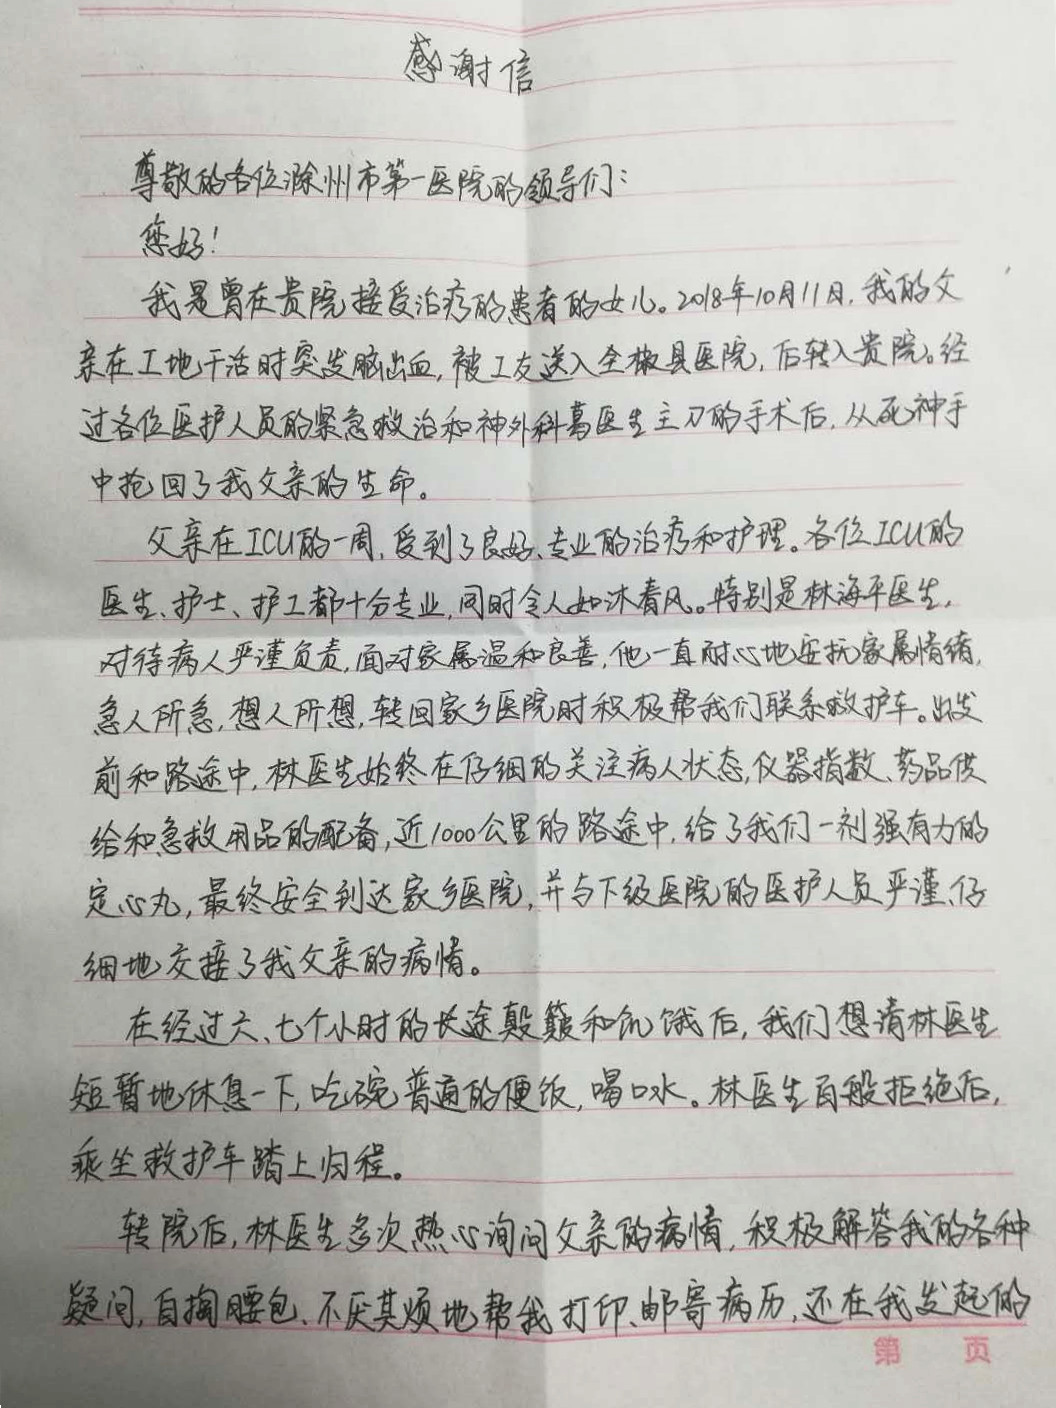 感谢信
尊敬的各位滁州市第一医院的领导们:
您好!
我是曾在贵院接受治疗的患者的女儿。2018年10月11日,我的父
亲在工地干活时突发脑出血,被工友送入全椒县医院,后转入贵院。经
过各位医护人员的紧急救治和神外科葛医生主刀的手术后,从死神手
中抢回了我父亲的生命。
父亲在ICU的一周,受到了良好、专业的治疗和护理。各位ICU的
医生、护士、护工都十分专业,同时令人如沐春风。特别是林海平医生,
对待病人严谨负责,面对家属温和良善,他一直耐心地安抚家属情绪,
急人所急,想人所想,转回家乡医院时积极帮我们联系救护车。出发
前和路途中,林医生始终在仔细的关注病人状态,仪器指数、药品供
给和急救用品的配备,近1000公里的路途中,给了我们一剂强有力的
定心丸,最终安全到达家乡医院,并与下级医院的医护人员严谨、仔
细地交接了我父亲的病情。
在经过六、七个小时的长途颠簸和饥饿后,我们想请林医生
短暂地休息一下,吃碗普通的便饭,喝口水。林医生百般拒绝后,
乘坐救护车踏上归程。
转院后,林医生多次热心询问父亲的病情,积极解答我的各种
疑问,自掏腰包、不厌其烦地帮我打印、邮寄病历,还在我发起的
第 页